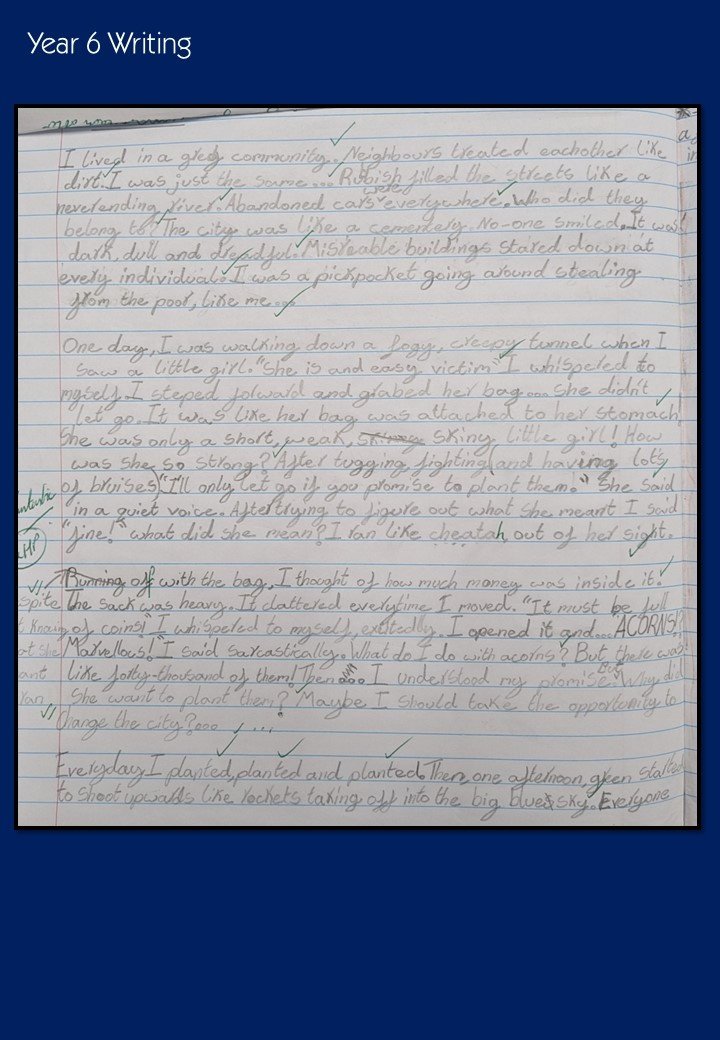 Year 6 Writing
I lived in a greg community. Neighbours treated eachother like
dirt. I was just the same... Rubish filled the streets like a
were
neverending river. Abandoned cars everywhere. Who did they
belong to? The city was like a cementery. No-one smiled. It was
dark, dull and dreadful. Misreable buildings stared down at
every individual. I was a pickpocket going around stealing
from the poor, like me...
One day, I was walking down a fogy, creepy tunnel when I
saw a little girl. "She is and easy victim" I whispered to
myself. I steped forward and grabed her bag... She didn't
let go. It was like her bag was attached to her stomach!
She was only a short, weak, skiny little girl! How
was she so strong? After tugging, fighting and having lots
of bruises, "I'll only let go if you promise to plant them." She said
in a quiet voice. After trying to figure out what she meant I said
"fine!" what did she mean? I ran like cheatah out of her sight.
HP
Running off with the bag, I thought of how much money was inside it.
spite The sack was heavy. It clattered everytime I moved. "It must be full
of coins!" I whispered to myself, excitedly. I opened it and... "ACORNS!?
Marvellous!" I said sarcastically. What do I do with acorns? But there was
like forty-thousand of them! Then... I understood my promise. But Why did
ran She want to plant them? Maybe I should take the opportunity to
change the city?...
Everyday I planted, planted and planted. Then, one afternoon, green started
to shoot upwards like rockets taking off into the big blue sky. Everyone